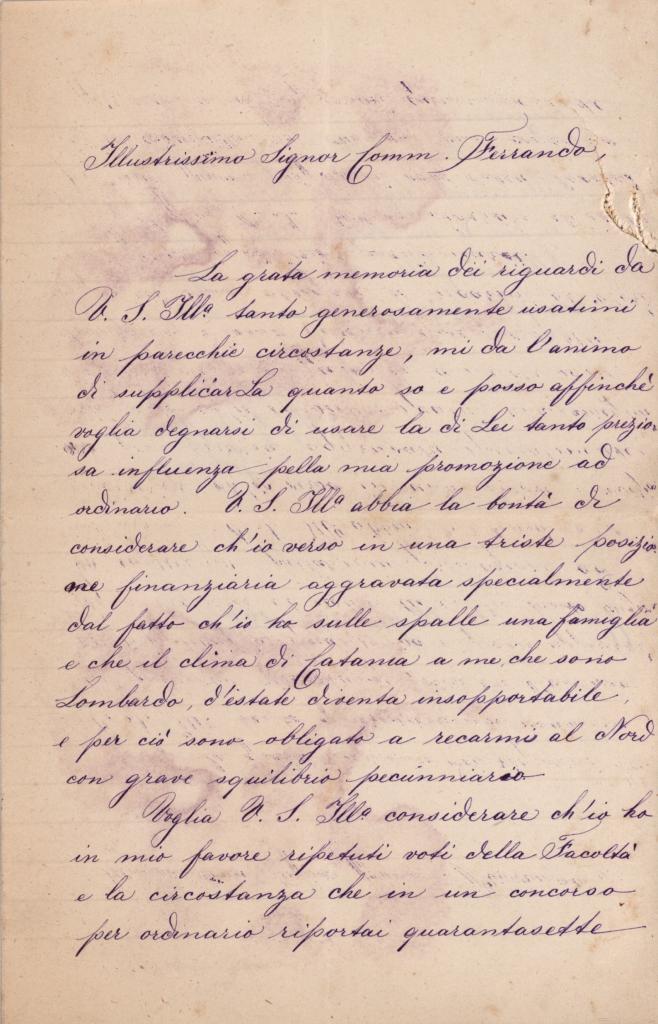 Illustrissimo Signor Comm. Ferrando,
La grata memoria dei riguardi da
V. S. Illª tanto generosamente usatimi
in parecchie circostanze, mi da l'animo
di supplicarLa quanto so e posso affinchè
voglia degnarsi di usare la di Lei tanto prezio-
sa influenza pella mia promozione ad
ordinario. V. S. Illª abbia la bontà di
considerare ch'io verso in una triste posizio-
ne finanziaria aggravata specialmente
dal fatto ch'io ho sulle spalle una famiglia
e che il clima di Catania a me, che sono
Lombardo, d'estate diventa insopportabile,
e per ciò sono obligato a recarmi al Nord
con grave squilibrio pecunniario
Voglia V. S. Illª considerare ch'io ho
in mio favore ripetuti voti della Facoltà
e la circostanza che in un concorso
per ordinario riportai quarantasette